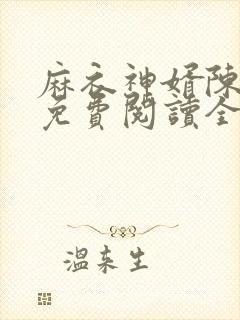 麻衣神婿陳
免費閱讀全
溫來生